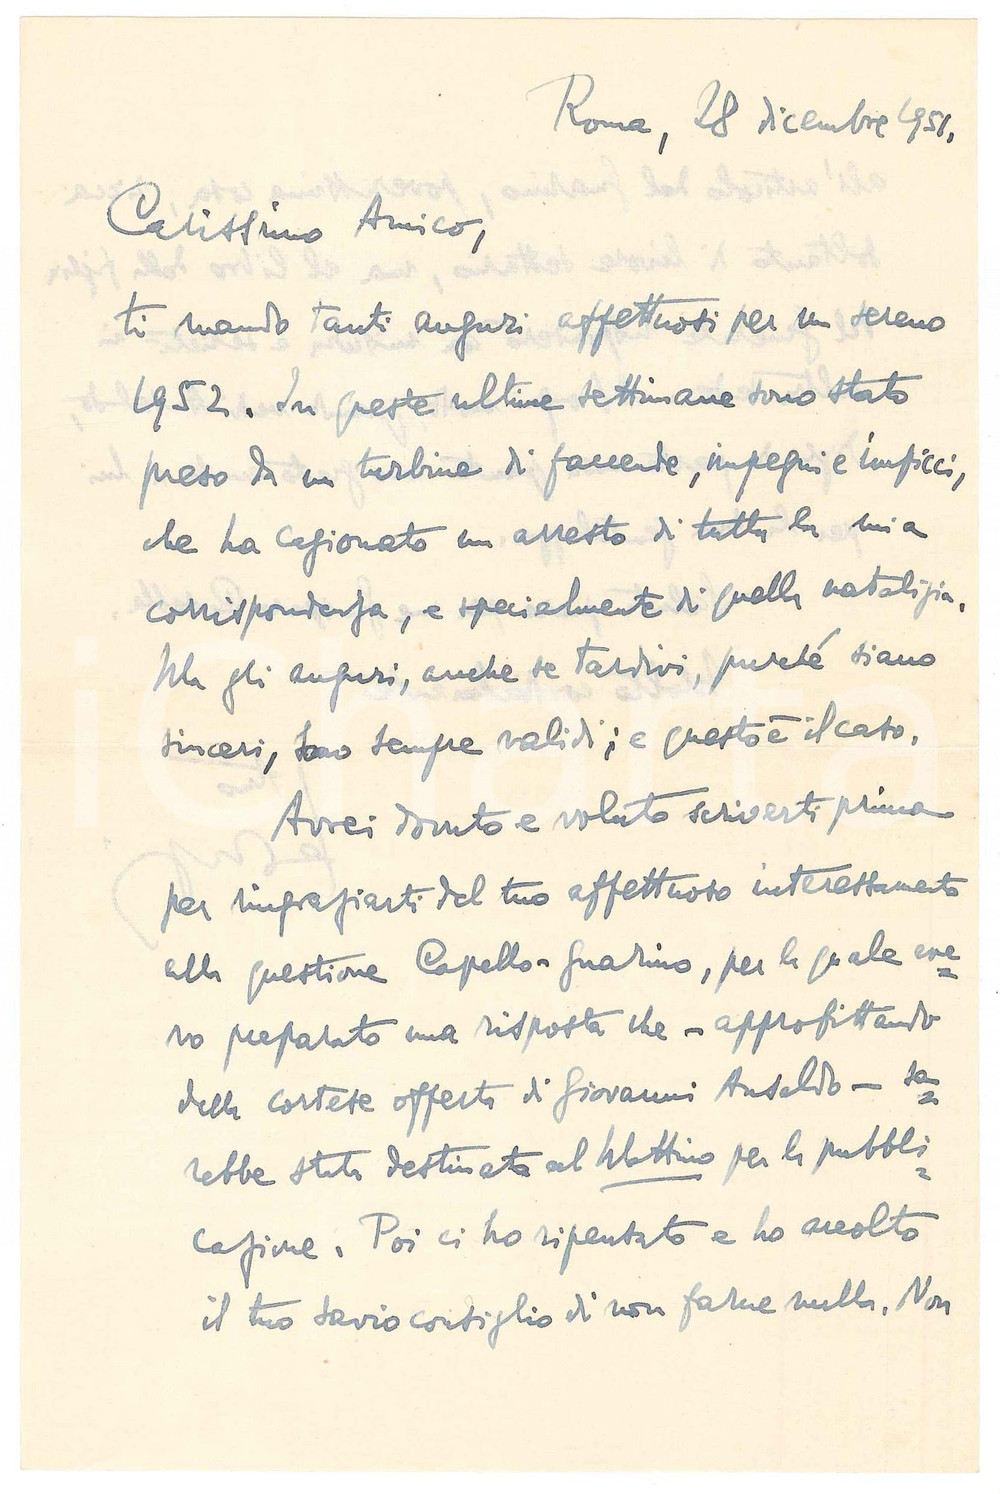 Roma, 28 dicembre 1951.
Carissimo Amico,
ti mando tanti auguri affettuosi per un sereno
1952. In queste ultime settimane sono stato
preso da un turbine di faccende, impegni e impicci,
che ha cagionato un arresto di tutta la mia
corrispondenza, e specialmente di quella natalizia.
Ma gli auguri, anche se tardivi, purché siano
sinceri, sono sempre validi; e questo è il caso.
Avrei dovuto e voluto scriverti prima
per ringraziarti del tuo affettuoso interessamento
alla questione Capello-Guarino, per la quale ave=
vo preparato una risposta che - approfittando
della cortese offerta di Giovanni Ansaldo - sa=
rebbe stata destinata al Mattino per la pubbli=
cazione. Poi ci ho ripensato e ho accolto
il tuo savio consiglio di non farne nulla. Non
iCharta